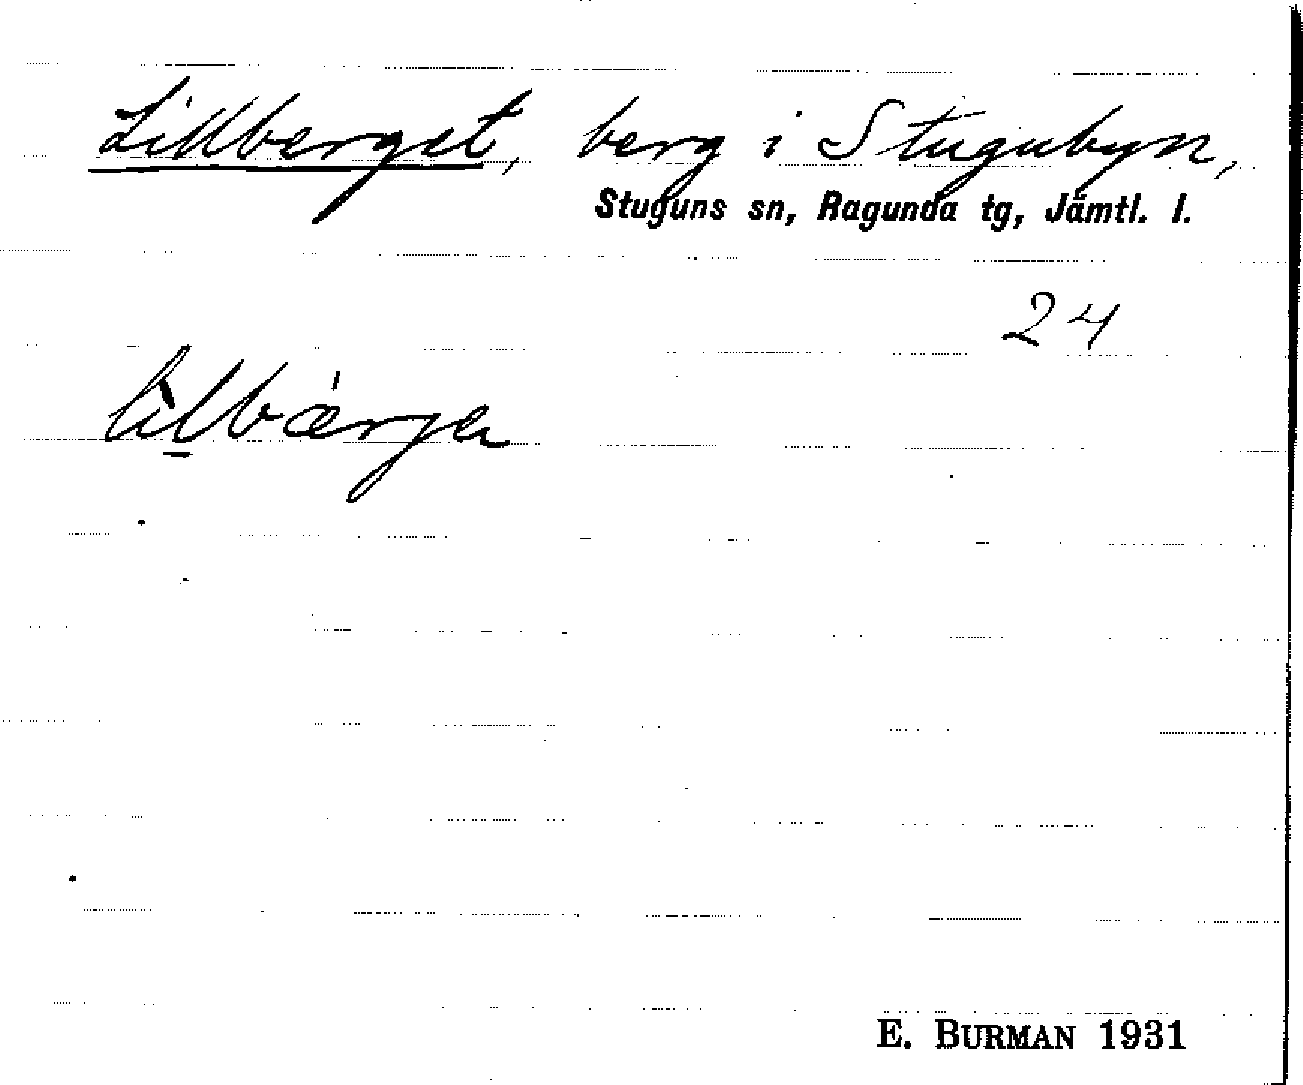 Lillberget, berg i Stugubyn,
Stuguns sn, Ragunda tg, Jämtl. l.
24
lìl̠bárgen
E. BURMAN 1931